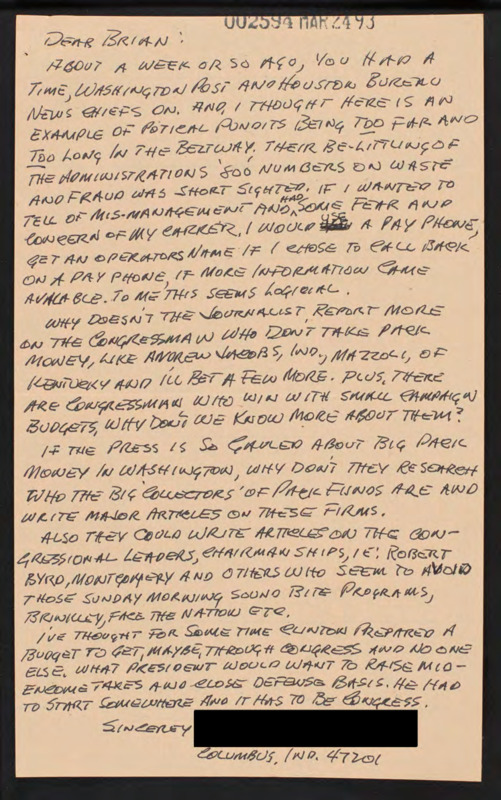 002594 MAR 24 93
DEAR BRIAN:
ABOUT A WEEK OR SO AGO, YOU HAD A
TIME, WASHINGTON POST AND HOUSTON BUREAU
NEWS CHIEFS ON. AND, I THOUGHT HERE IS AN
EXAMPLE OF POTICAL PUNDITS BEING TOO FAR AND
TOO LONG IN THE BELTWAY. THEIR BE-LITTLING OF
THE ADMINISTRATIONS '800' NUMBERS ON WASTE
AND FRAUD WAS SHORT SIGHTED. IF I WANTED TO
TELL OF MIS-MANAGEMENT AND, HAD SOME FEAR AND
CONCERN OF MY CARRER, I WOULD USE A PAY PHONE,
GET AN OPERATORS NAME IF I CHOSE TO CALL BACK
ON A PAY PHONE, IF MORE INFORMATION CAME
AVALABLE. TO ME THIS SEEMS LOGICIAL.
WHY DOESN'T THE JOURNALIST REPORT MORE
ON THE CONGRESSMAN WHO DON'T TAKE PACK
MONEY, LIKE ANDREW JACOBS, IND., MAZZOLI, OF
KENTUCKY AND I'LL BET A FEW MORE. PLUS, THERE
ARE CONGRESSMAN WHO WIN WITH SMALL CAMPAIGN
BUDGETS, WHY DON'T WE KNOW MORE ABOUT THEM?
IF THE PRESS IS SO GAULED ABOUT BIG PACK
MONEY IN WASHINGTON, WHY DON'T THEY RESEARCH
WHO THE BIG 'COLLECTORS' OF PACK FUNDS ARE AND
WRITE MAJOR ARTICLES ON THESE FIRMS.
ALSO THEY COULD WRITE ARTICLES ON THE CON-
GRESSIONAL LEADERS, CHAIRMANSHIPS, I.E. ROBERT
BYRD, MONTGOMERY AND OTHERS WHO SEEM TO AVOID
THOSE SUNDAY MORNING SOUND BITE PROGRAMS,
BRINKLEY, FACE THE NATION ETC.
I'VE THOUGHT FOR SOME TIME CLINTON PREPARED A
BUDGET TO GET, MAYBE, THROUGH CONGRESS AND NO ONE
ELSE. WHAT PRESIDENT WOULD WANT TO RAISE MID-
ENCOME TAXES AND CLOSE DEFENSE BASIS. HE HAD
TO START SOMEWHERE AND IT HAS TO BE CONGRESS.
SINCERLEY
COLUMBUS, IND. 47201